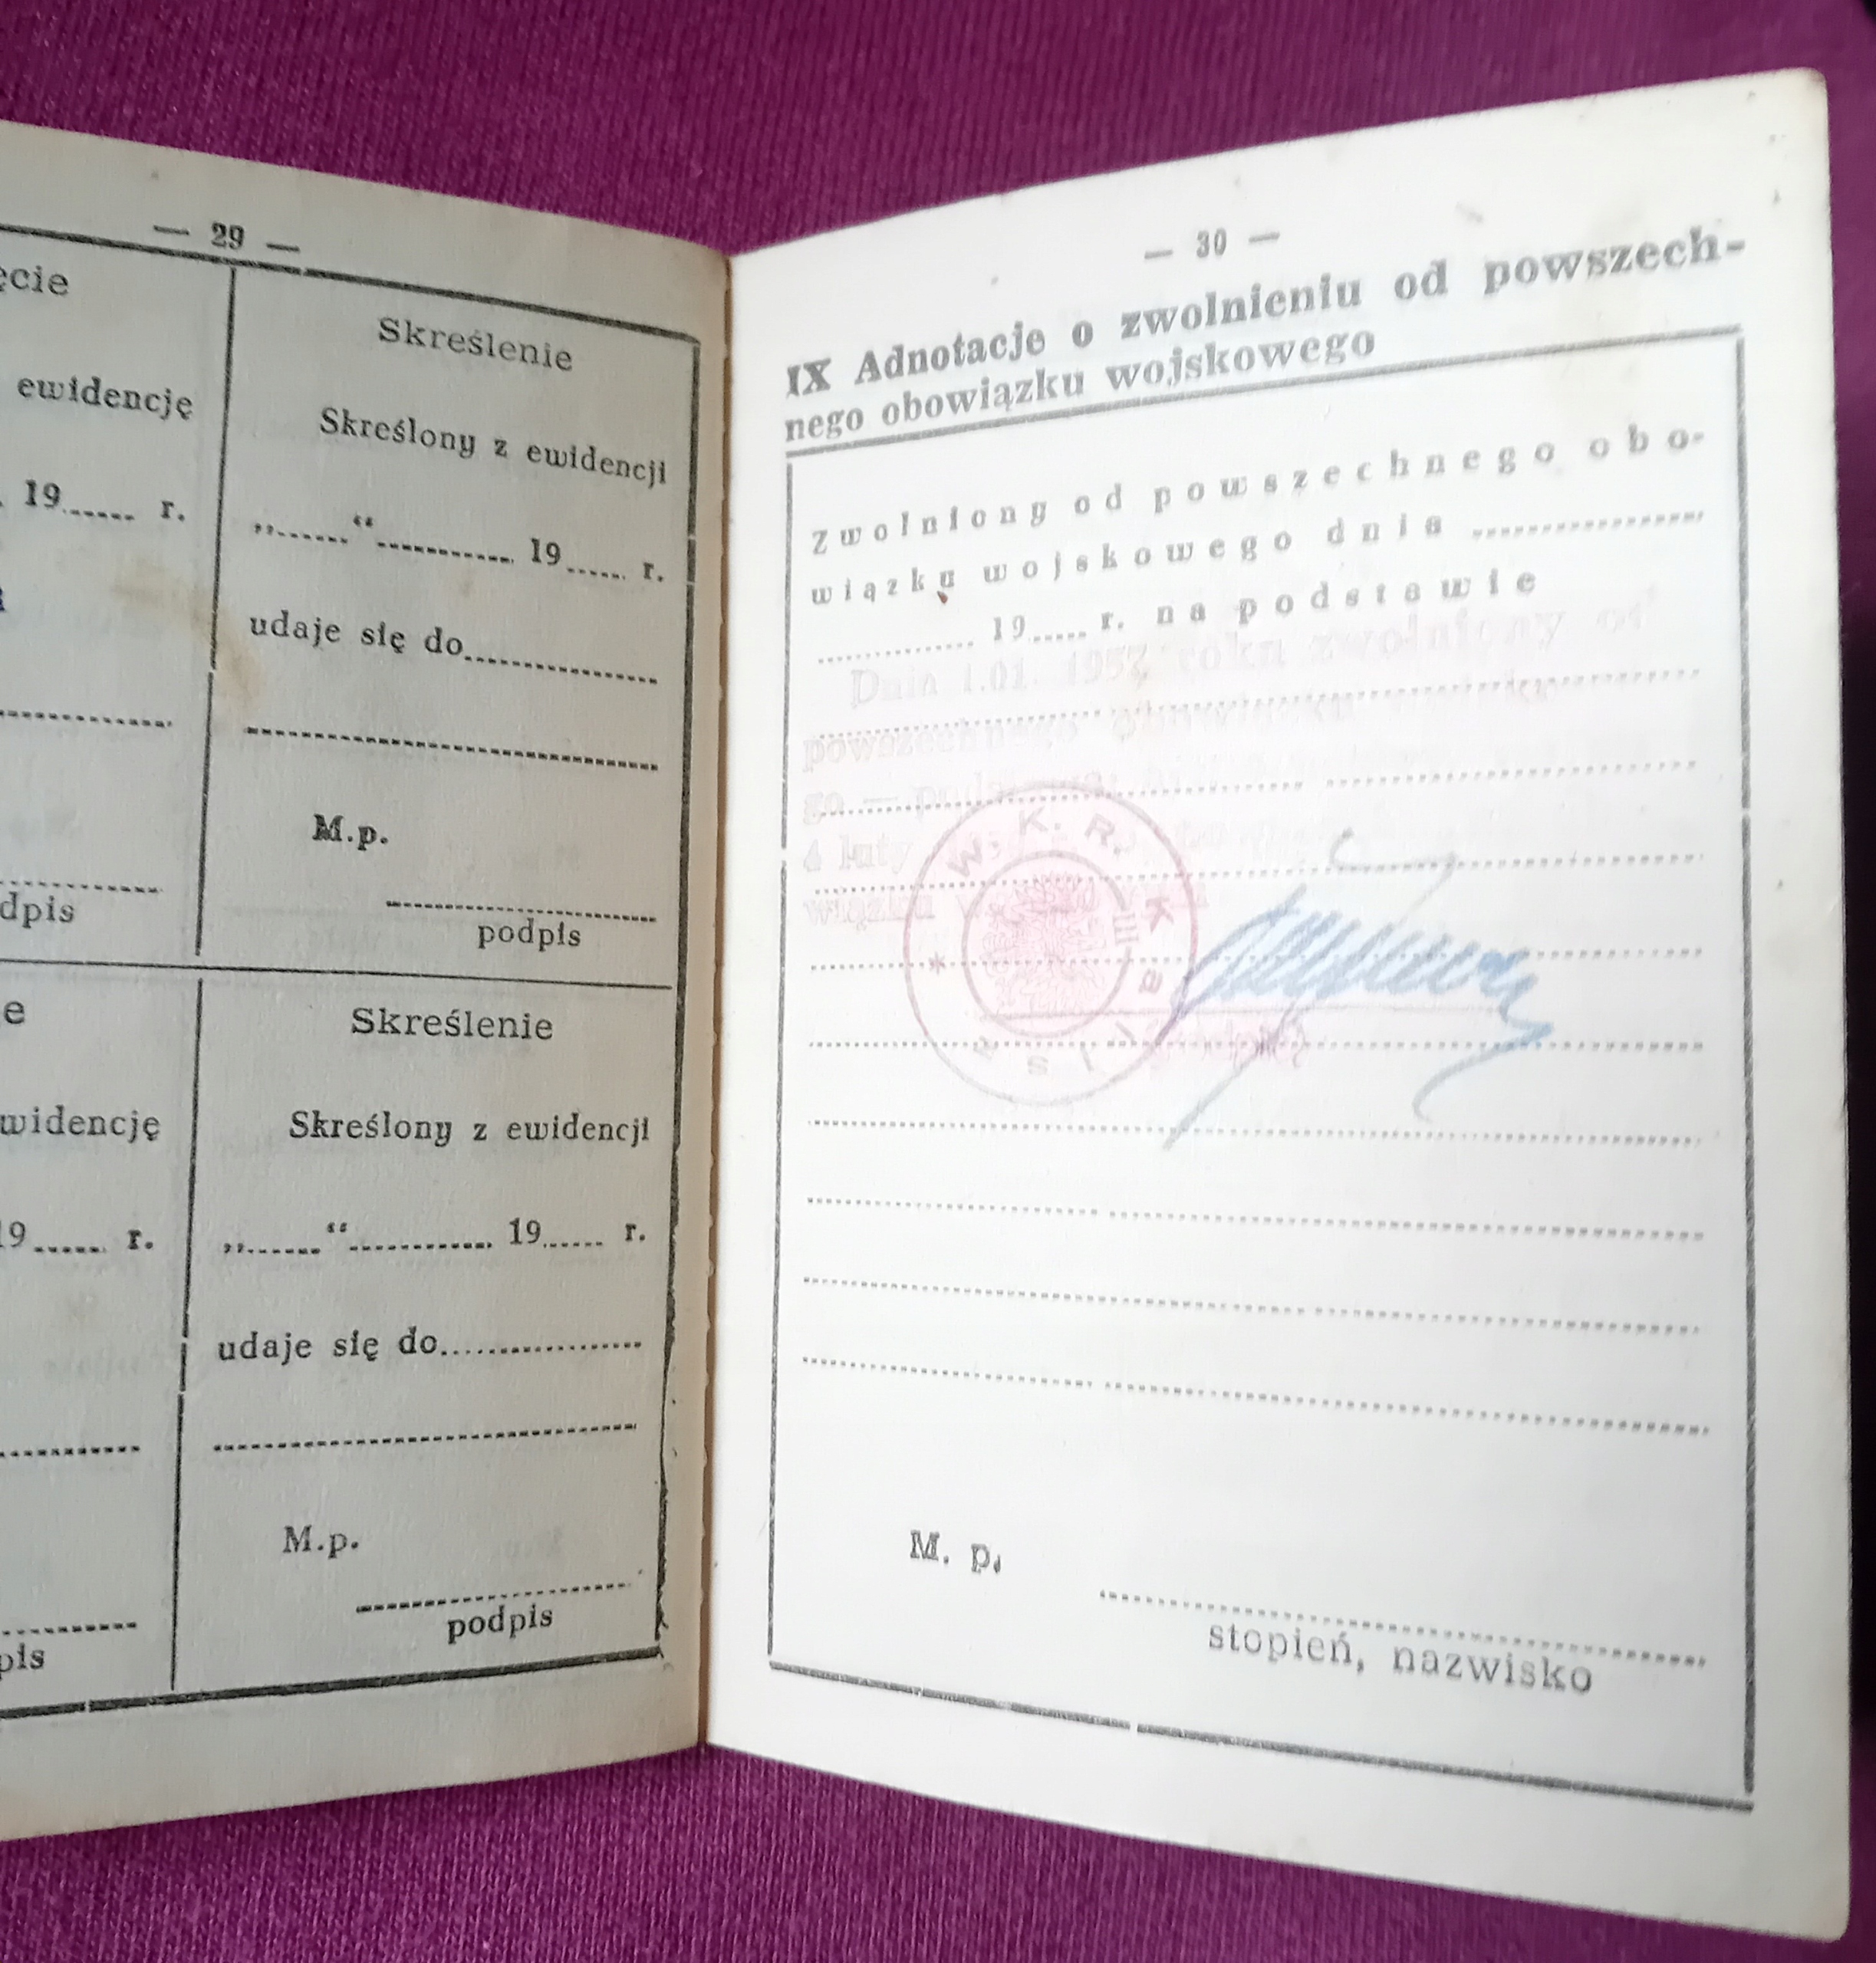 — 29 —
ewidencję
19...... r.
Skreślenie
Skreślony z ewidencji
„......“............ 19...... r.
udaje się do
M.p.
podpis
widencję
19...... r.
Skreślenie
Skreślony z ewidencji
„......“............ 19...... r.
udaje się do
M.p.
podpis
— 30 —
IX Adnotacje o zwolnieniu od powszech-
nego obowiązku wojskowego
Zwolniony od powszechnego obo-
wiązku wojskowego dnia
19...... r. na podstawie
Dnia 1.01. 1957 roku zwolniony od
powszechnego obowiązku
go —
4 luty
wiązku
W. K. R. K
M. p.
stopień, nazwisko